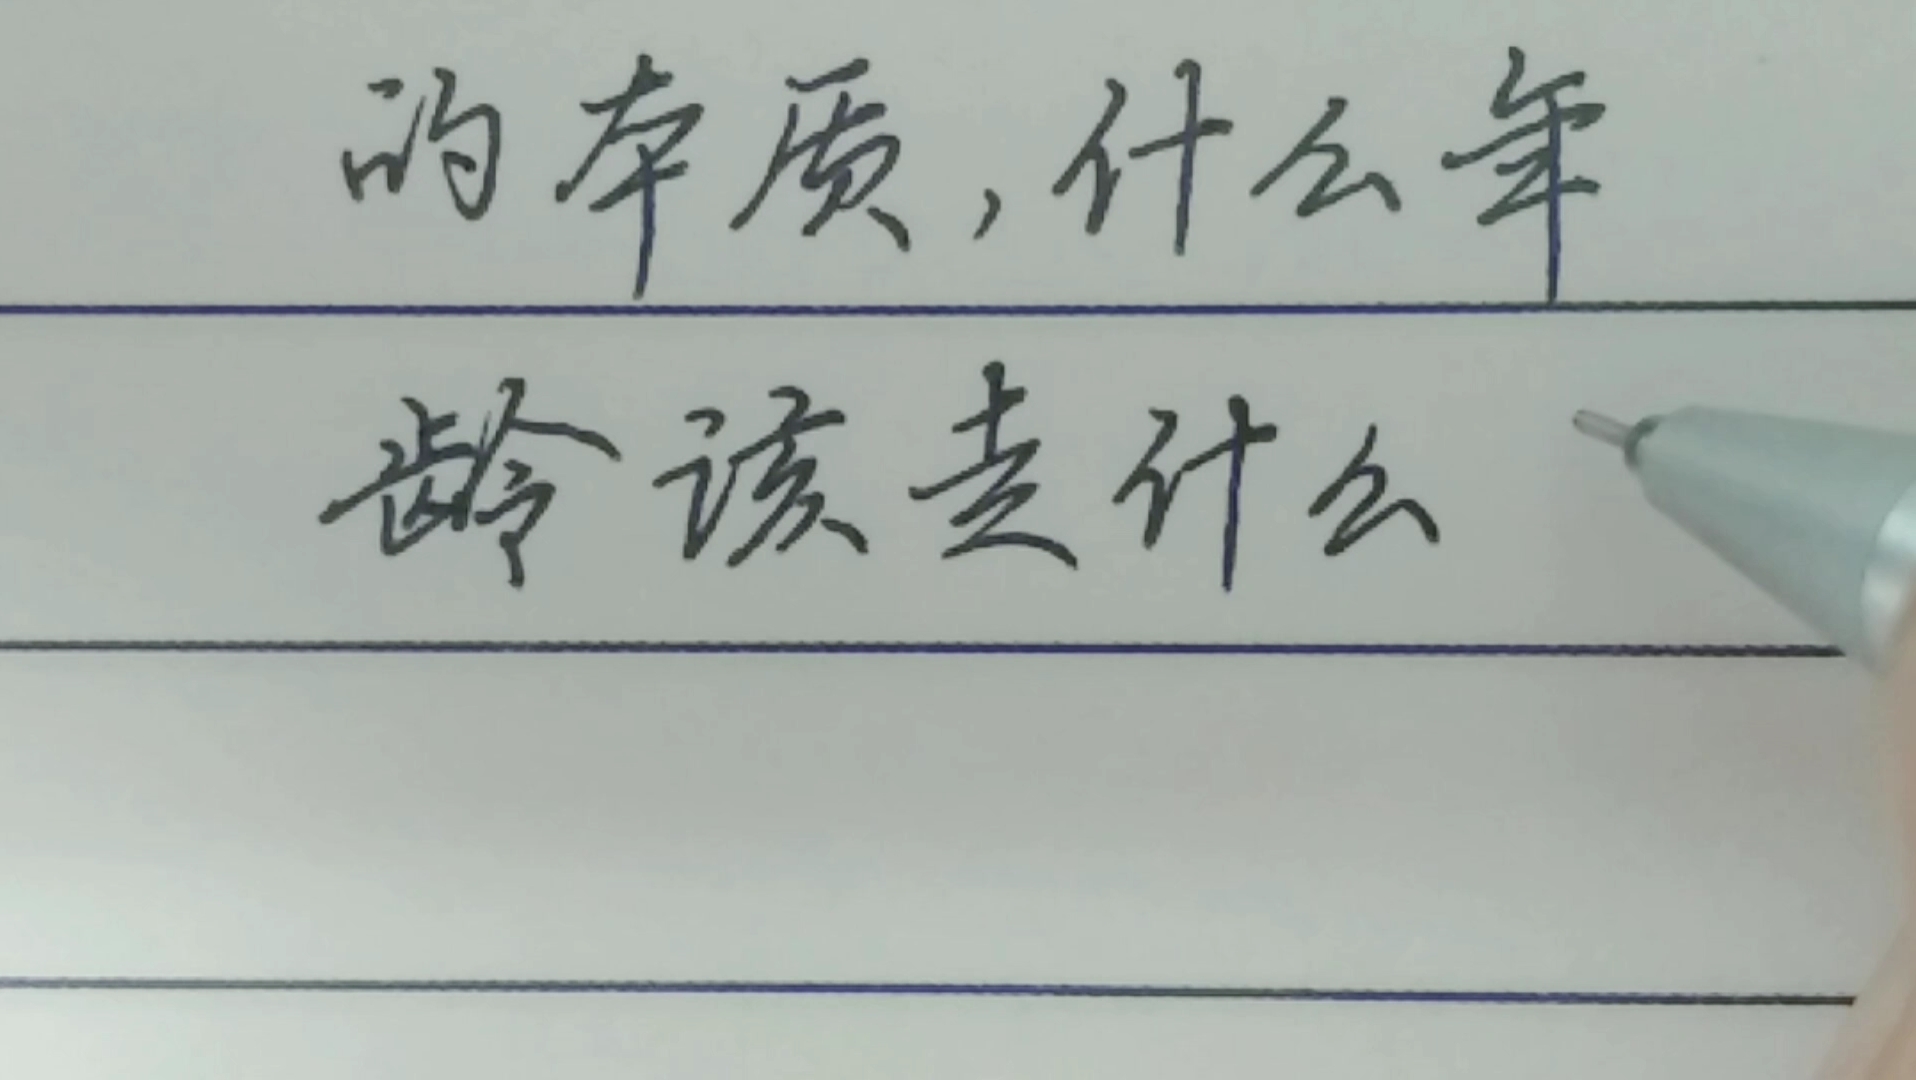 的本质,什么年
龄该走什么